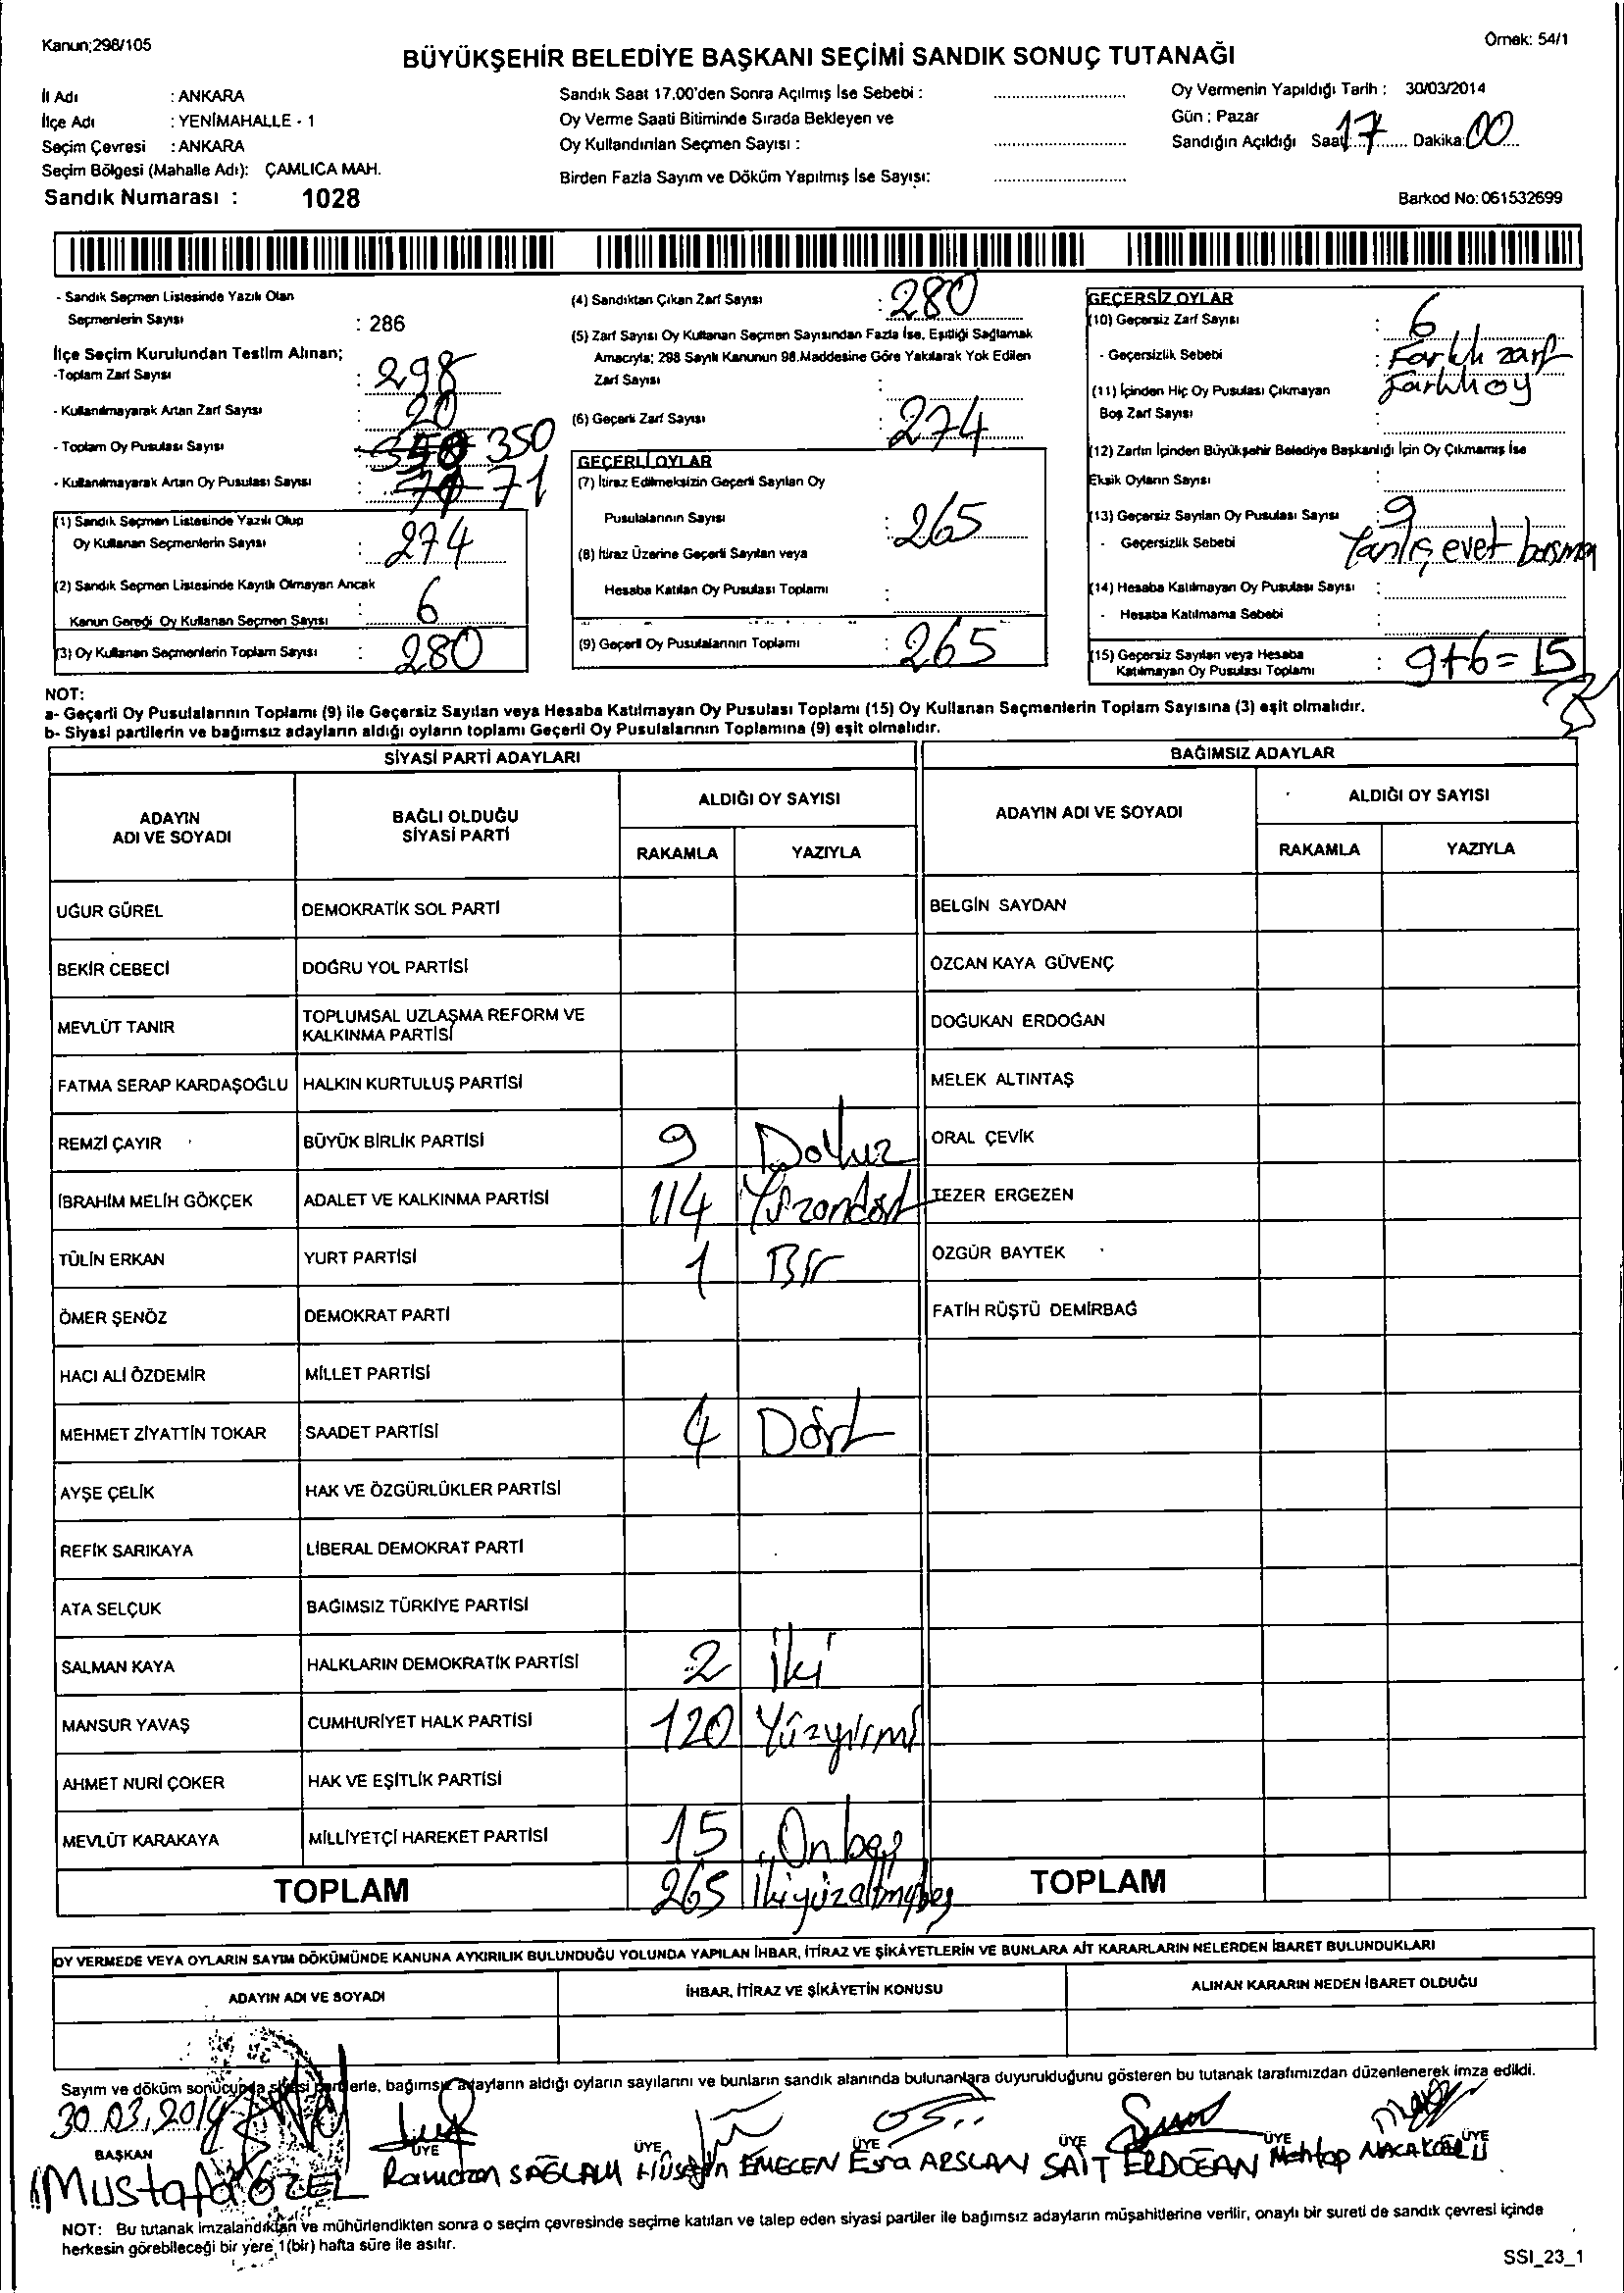 Kanun;298/105
Örnek: 54/1
BÜYÜKŞEHİR BELEDİYE BAŞKANI SEÇİMİ SANDIK SONUÇ TUTANAĞI
İl Adı : ANKARA
İlçe Adı : YENİMAHALLE - 1
Seçim Çevresi : ANKARA
Seçim Bölgesi (Mahalle Adı): ÇAMLICA MAH.
Sandık Numarası : 1028
Sandık Saat 17.00'den Sonra Açılmış İse Sebebi :
Oy Verme Saati Bitiminde Sırada Bekleyen ve
Oy Kullandırılan Seçmen Sayısı :
Birden Fazla Sayım ve Döküm Yapılmış İse Sayısı:
Oy Vermenin Yapıldığı Tarih : 30/03/2014
Gün : Pazar
Sandığın Açıldığı Saat 17 Dakika: 00
Barkod No: 061532699
- Sandık Seçmen Listesinde Yazılı Olan
Seçmenlerin Sayısı : 286
İlçe Seçim Kurulundan Teslim Alınan;
-Toplam Zarf Sayısı : 298
- Kullanılmayarak Artan Zarf Sayısı : 20
- Toplam Oy Pusulası Sayısı : 350
- Kullanılmayarak Artan Oy Pusulası Sayısı : 71
(1) Sandık Seçmen Listesinde Yazılı Olup
Oy Kullanan Seçmenlerin Sayısı : 274
(2) Sandık Seçmen Listesinde Kayıtlı Olmayan Ancak
Kanun Gereği Oy Kullanan Seçmen Sayısı : 6
(3) Oy Kullanan Seçmenlerin Toplam Sayısı : 280
(4) Sandıktan Çıkan Zarf Sayısı : 280
(5) Zarf Sayısı Oy Kullanan Seçmen Sayısından Fazla İse, Eşitliği Sağlamak
Amacıyla; 298 Sayılı Kanunun 98.Maddesine Göre Yakılarak Yok Edilen
Zarf Sayısı :
(6) Geçerli Zarf Sayısı : 274
GEÇERLİ OYLAR
(7) İtiraz Edilmeksizin Geçerli Sayılan Oy
Pusulalarının Sayısı : 265
(8) İtiraz Üzerine Geçerli Sayılan veya
Hesaba Katılan Oy Pusulası Toplamı :
(9) Geçerli Oy Pusulalarının Toplamı : 265
GEÇERSİZ OYLAR
(10) Geçersiz Zarf Sayısı : 6
- Geçersizlik Sebebi : Farklı zarf
Farklı oy
(11) İçinden Hiç Oy Pusulası Çıkmayan
Boş Zarf Sayısı :
(12) Zarfın İçinden Büyükşehir Belediye Başkanlığı İçin Oy Çıkmamış İse
Eksik Oyların Sayısı :
(13) Geçersiz Sayılan Oy Pusulası Sayısı : 9
- Geçersizlik Sebebi Yanlış evet basma
(14) Hesaba Katılmayan Oy Pusulası Sayısı :
- Hesaba Katılmama Sebebi
(15) Geçersiz Sayılan veya Hesaba
Katılmayan Oy Pusulası Toplamı : 9+6=15
NOT:
a- Geçerli Oy Pusulalarının Toplamı (9) ile Geçersiz Sayılan veya Hesaba Katılmayan Oy Pusulası Toplamı (15) Oy Kullanan Seçmenlerin Toplam Sayısına (3) eşit olmalıdır.
b- Siyasi partilerin ve bağımsız adayların aldığı oyların toplamı Geçerli Oy Pusulalarının Toplamına (9) eşit olmalıdır.
SİYASİ PARTİ ADAYLARI
BAĞIMSIZ ADAYLAR
ADAYIN ADI VE SOYADI
BAĞLI OLDUĞU SİYASİ PARTİ
ALDIĞI OY SAYISI
RAKAMLA YAZIYLA
ADAYIN ADI VE SOYADI
ALDIĞI OY SAYISI
RAKAMLA YAZIYLA
UĞUR GÜREL DEMOKRATİK SOL PARTİ BELGİN SAYDAN
BEKİR CEBECİ DOĞRU YOL PARTİSİ ÖZCAN KAYA GÜVENÇ
MEVLÜT TANIR TOPLUMSAL UZLAŞMA REFORM VE KALKINMA PARTİSİ DOĞUKAN ERDOĞAN
FATMA SERAP KARDAŞOĞLU HALKIN KURTULUŞ PARTİSİ MELEK ALTINTAŞ
REMZİ ÇAYIR BÜYÜK BİRLİK PARTİSİ 9 Dokuz ORAL ÇEVİK
İBRAHİM MELİH GÖKÇEK ADALET VE KALKINMA PARTİSİ 114 Yüzondört TEZER ERGEZEN
TÜLİN ERKAN YURT PARTİSİ 1 Bir ÖZGÜR BAYTEK
ÖMER ŞENÖZ DEMOKRAT PARTİ FATİH RÜŞTÜ DEMİRBAĞ
HACI ALİ ÖZDEMİR MİLLET PARTİSİ
MEHMET ZİYATTİN TOKAR SAADET PARTİSİ 4 Dört
AYŞE ÇELİK HAK VE ÖZGÜRLÜKLER PARTİSİ
REFİK SARIKAYA LİBERAL DEMOKRAT PARTİ
ATA SELÇUK BAĞIMSIZ TÜRKİYE PARTİSİ
SALMAN KAYA HALKLARIN DEMOKRATİK PARTİSİ 2 İki
MANSUR YAVAŞ CUMHURİYET HALK PARTİSİ 120 Yüzyirmi
AHMET NURİ ÇOKER HAK VE EŞİTLİK PARTİSİ
MEVLÜT KARAKAYA MİLLİYETÇİ HAREKET PARTİSİ 15 Onbeş
TOPLAM 265 İkiyüzaltmışbeş TOPLAM
OY VERMEDE VEYA OYLARIN SAYIM DÖKÜMÜNDE KANUNA AYKIRILIK BULUNDUĞU YOLUNDA YAPILAN İHBAR, İTİRAZ VE ŞİKÂYETLERİN VE BUNLARA AİT KARARLARIN NELERDEN İBARET BULUNDUKLARI
ADAYIN ADI VE SOYADI İHBAR, İTİRAZ VE ŞİKÂYETİN KONUSU ALINAN KARARIN NEDEN İBARET OLDUĞU
Sayım ve döküm sonucunda siyasi partilerle, bağımsız adayların aldığı oyların sayılarını ve bunların sandık alanında bulunanlara duyurulduğunu gösteren bu tutanak tarafımızdan düzenlenerek imza edildi.
30.03.2014
BAŞKAN ÜYE ÜYE ÜYE ÜYE ÜYE ÜYE
Mustafa ÖZEL Ramazan SAĞLAM Hüseyin EMECEN Esra ARSLAN SAİT ERDOĞAN Mehtap
NOT: Bu tutanak imzalandıktan ve mühürlendikten sonra o seçim çevresinde seçime katılan ve talep eden siyasi partiler ile bağımsız adayların müşahitlerine verilir, onaylı bir sureti de sandık çevresi içinde
herkesin görebileceği bir yere 1(bir) hafta süre ile asılır.
SSI_23_1